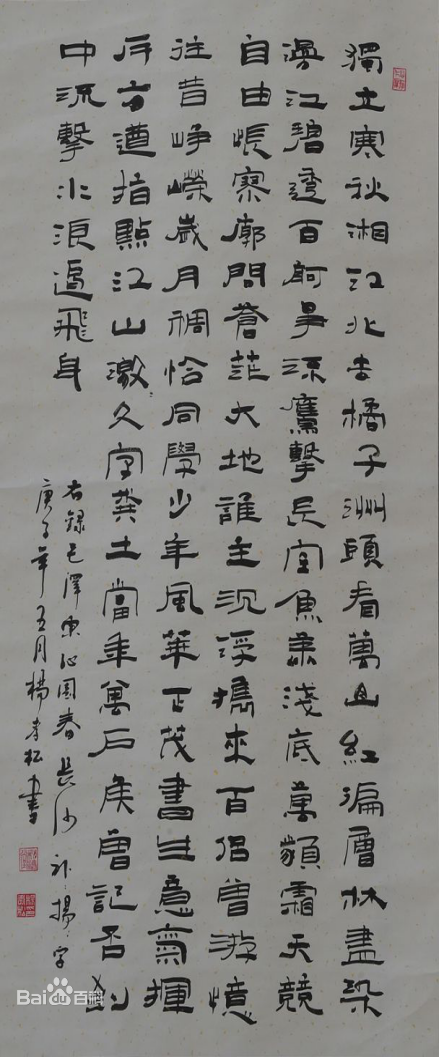 獨立寒秋湘江北去橘子洲頭看萬山紅徧層林盡染
漫江碧透百舸爭流鷹擊長空魚翔淺底萬類霜天競
自由悵寥廓問蒼茫大地誰主沉浮攜來百侶曾游憶
往昔崢嶸歲月稠恰同學少年風華正茂書生意氣揮
斥方遒指點江山激文字糞土當年萬戶侯曾記否到
中流擊水浪遏飛舟
右錄毛澤東沁園春長沙 补揚字
庚子年五月楊孝松書
Bai百科